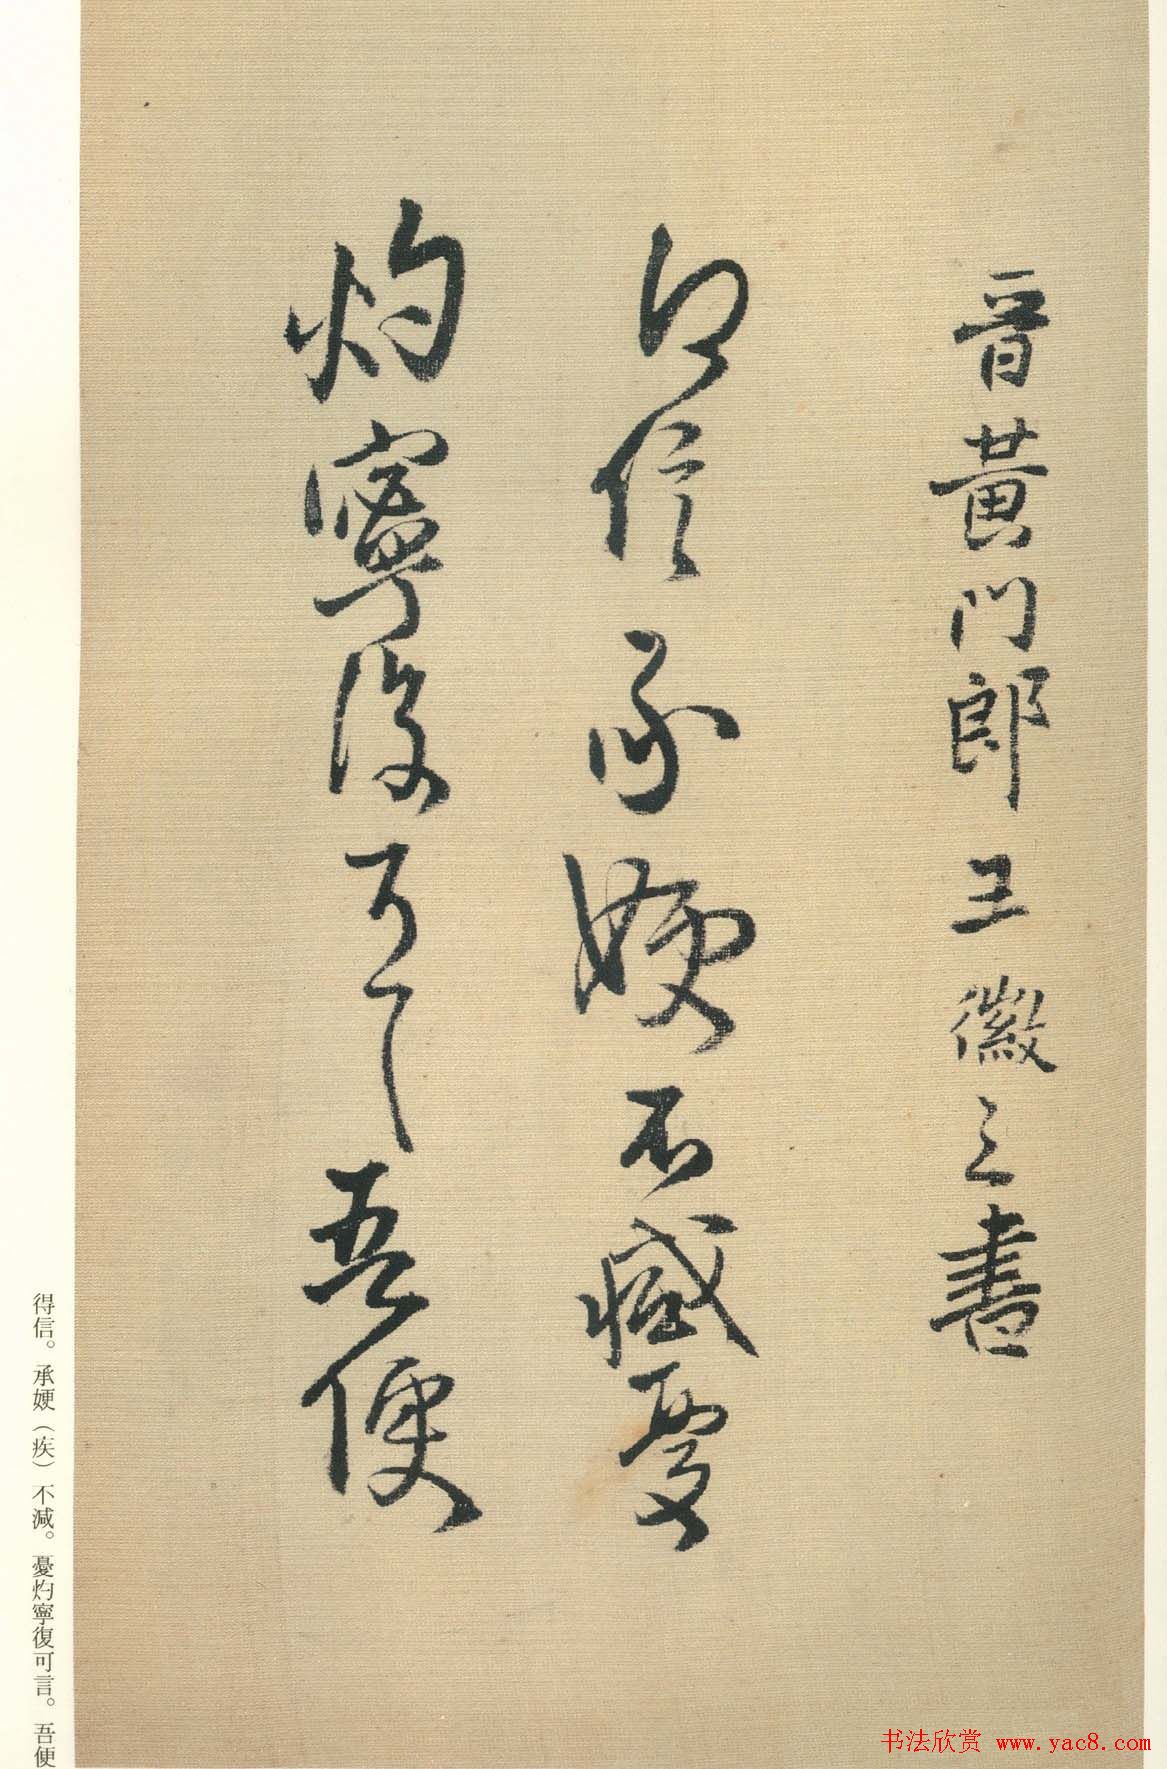 晋黄门郎王徽之書
得信承㛐不減憂
灼寧復可言吾便
得信。承㛐（疾）不減。憂灼寧復可言。吾便
书法欣赏 www.yac8.com